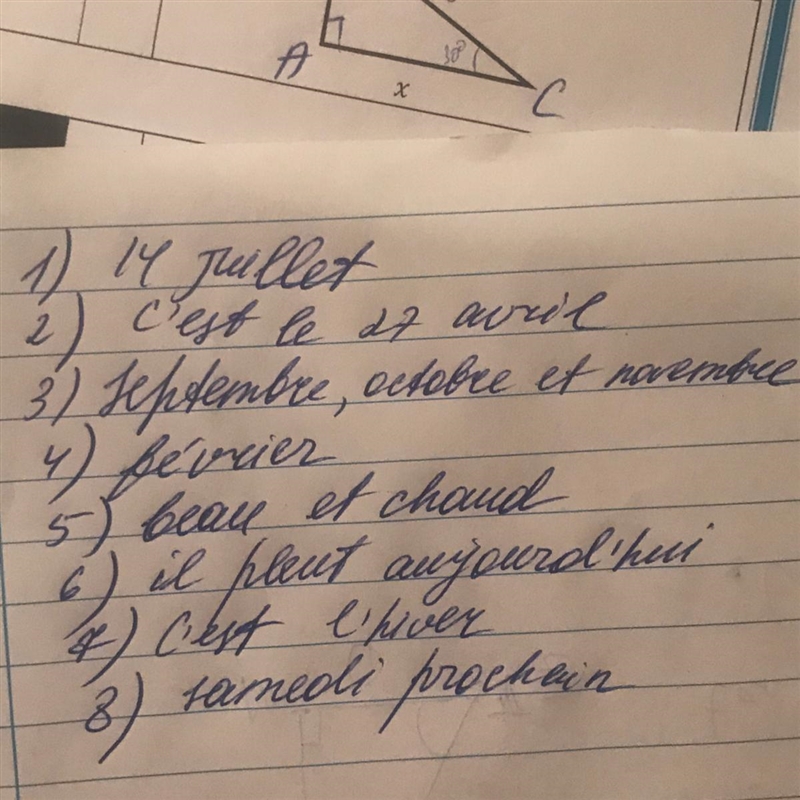 A
30°
x
C
1) 14 juillet
2) C'est le 27 avril
3) septembre, octobre et novembre
4) février
5) beau et chaud
6) il pleut aujourd'hui
7) C'est l'hiver
8) samedi prochain